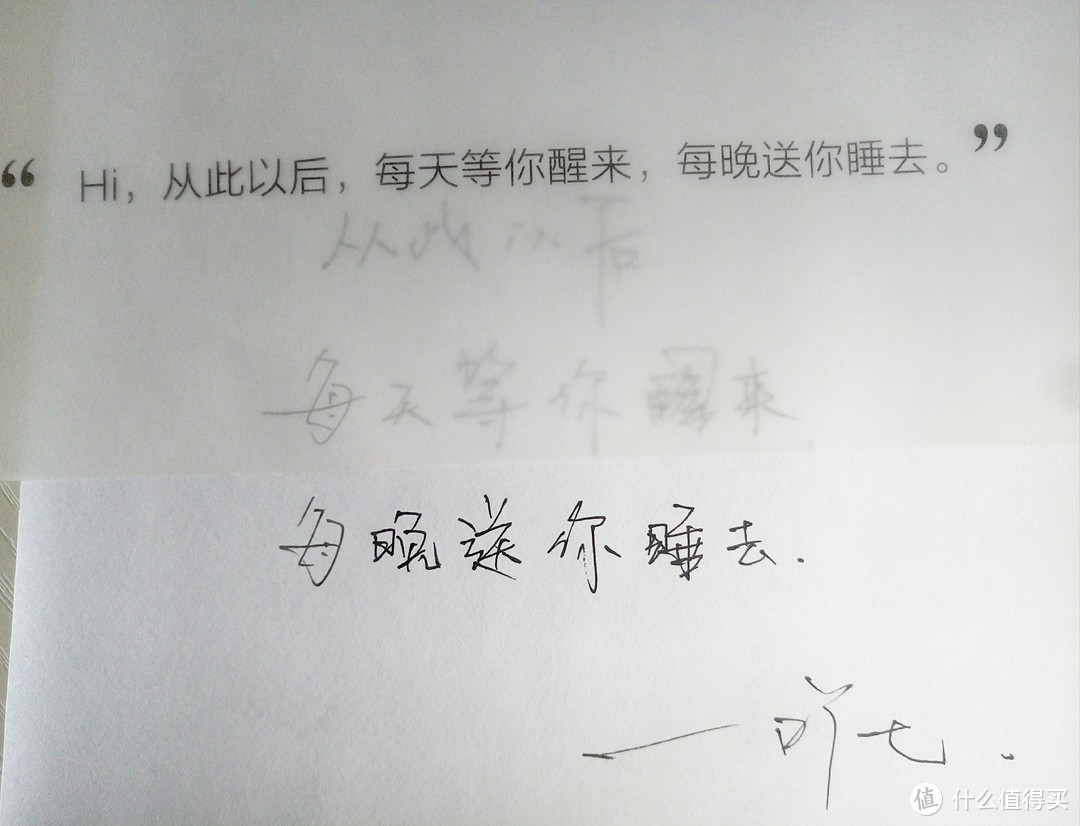 “ Hi，从此以后，每天等你醒来，每晚送你睡去。”
从此以后
每天等你醒来，
每晚送你睡去.
——吖七.
值 什么值得买